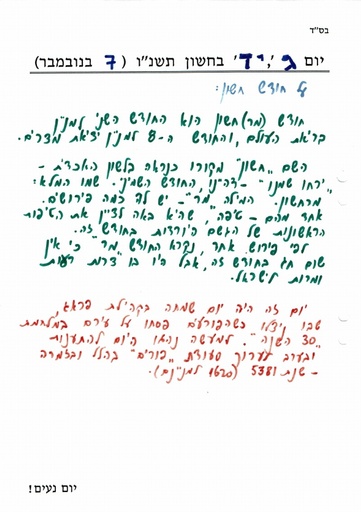 בס"ד
יום ג', י"ד בחשון תשנ"ו (7 בנובמבר)
על חודש חשון:
חודש (מר)חשון הוא החודש השני למנין
בריאת העולם, והחודש ה-8 למנין יציאת מצרים.
השם "חשון" מקורו כנראה בלשון האכדית -
"ירחו שמנו" - דהיינו, החודש השמיני. שמו המלא:
מרחשון. המילה "מר" - יש לה כמה פירושים.
אחד מהם - טיפה, שהיא באה לציין את הטיפות
הראשונות של הגשם היורדות בחודש זה.
לפי פירוש אחר, נקרא החודש "מר" כי אין
שום חג בחודש זה, אבל היו בו צרות רעות
ומרות לישראל.
יום זה היה יום שמחה בקהילת פראג
שבו ניצלו כשהפורעים פסחו על עירם במלחמת
"30 השנה". למעשה נהגו היום להתענות
ובערב לערוך סעודת "פורים" בהלל ובזמרה
- שנת 5381 (1620 למנינם).
יום נעים!